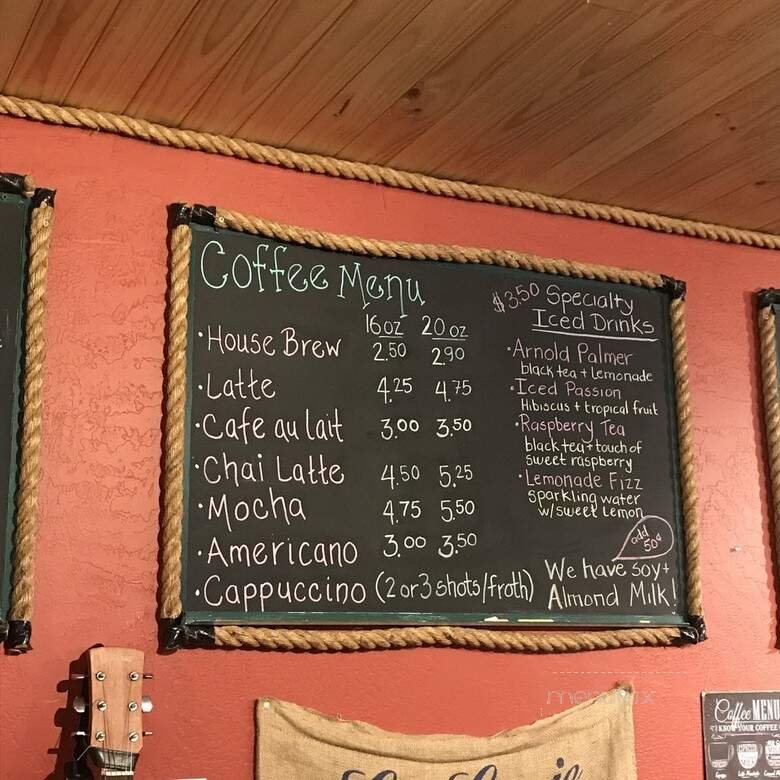 Coffee Menu
16oz 20oz
·House Brew 2.50 2.90
·Latte 4.25 4.75
·Cafe au lait 3.00 3.50
·Chai Latte 4.50 5.25
·Mocha 4.75 5.50
·Americano 3.00 3.50
·Cappuccino (2 or 3 shots/froth)
$3.50 Specialty
Iced Drinks
·Arnold Palmer
black tea + lemonade
·Iced Passion
Hibiscus + tropical fruit
·Raspberry Tea
black tea + touch of
sweet raspberry
·Lemonade Fizz
sparkling water
w/sweet Lemon
add
50¢
We have soy +
Almond Milk!
Coffee MENU
KNOW YOUR COFFEE